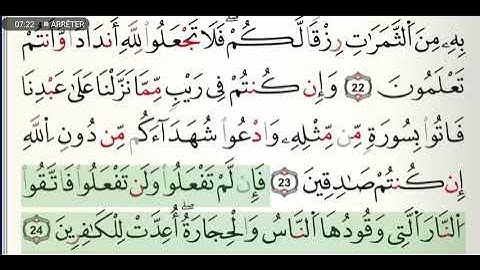 07:22 ARRÊTER
بِهِۦ مِنَ ٱلثَّمَرَٰتِ رِزۡقٗا لَّكُمۡۖ فَلَا تَجۡعَلُواْ لِلَّهِ أَندَادٗا وَأَنتُمۡ
تَعۡلَمُونَ 22 وَإِن كُنتُمۡ فِي رَيۡبٖ مِّمَّا نَزَّلۡنَا عَلَىٰ عَبۡدِنَا
فَأۡتُواْ بِسُورَةٖ مِّن مِّثۡلِهِۦ وَٱدۡعُواْ شُهَدَآءَكُم مِّن دُونِ ٱللَّهِ
إِن كُنتُمۡ صَٰدِقِينَ 23 فَإِن لَّمۡ تَفۡعَلُواْ وَلَن تَفۡعَلُواْ فَٱتَّقُواْ
ٱلنَّارَ ٱلَّتِي وَقُودُهَا ٱلنَّاسُ وَٱلۡحِجَارَةُۖ أُعِدَّتۡ لِلۡكَٰفِرِينَ 24